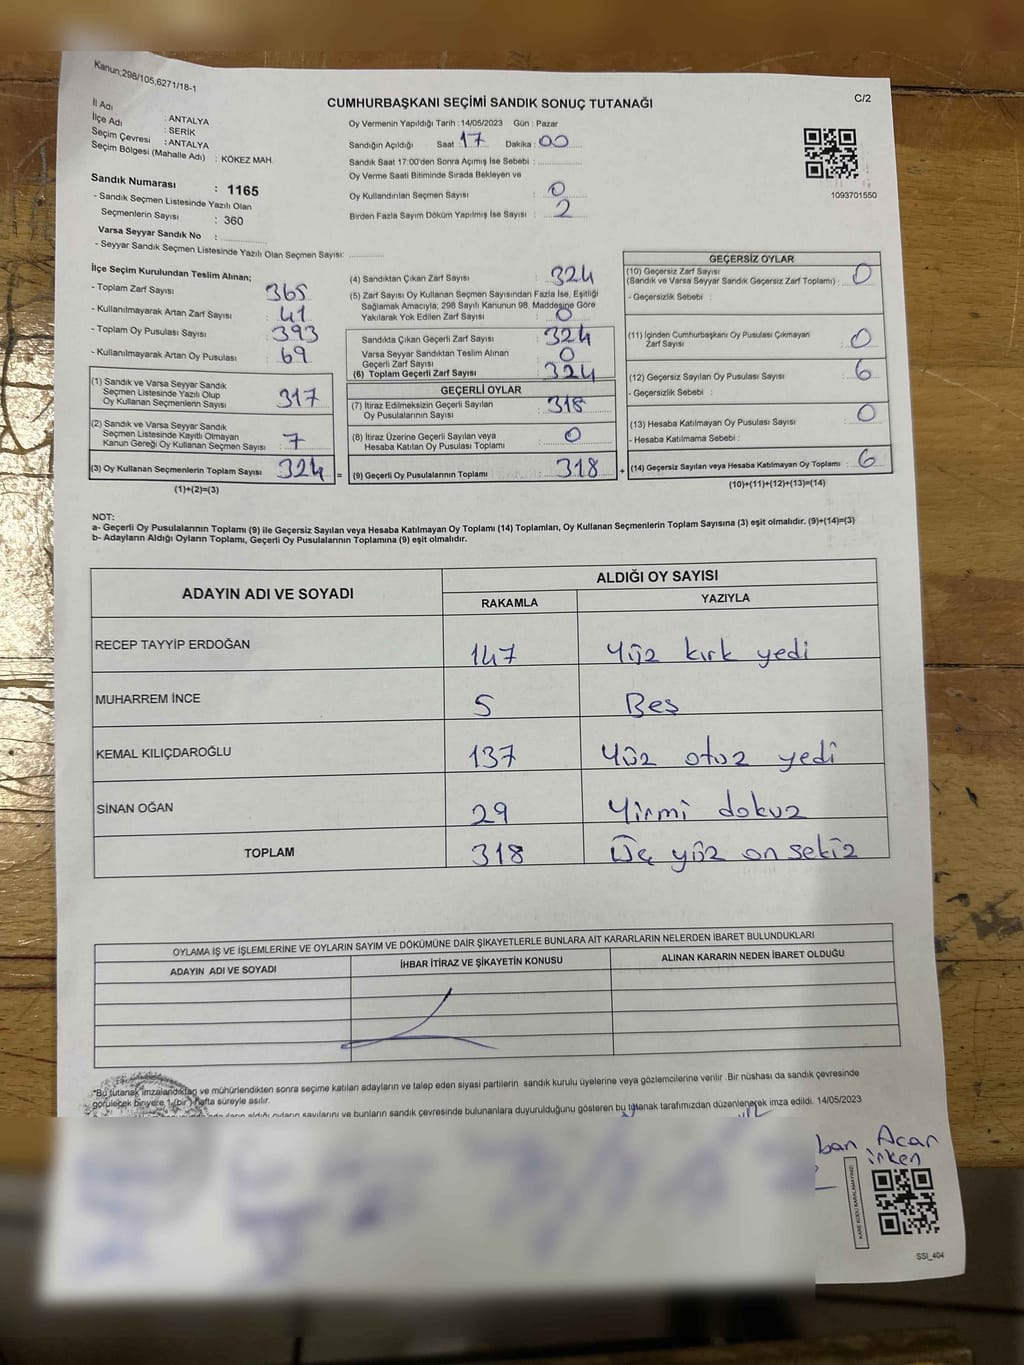 Kanun;298/105,6271/18-1
CUMHURBAŞKANI SEÇİMİ SANDIK SONUÇ TUTANAĞI
C/2
İl Adı : ANTALYA
İlçe Adı : SERİK
Seçim Çevresi : ANTALYA
Seçim Bölgesi (Mahalle Adı) : KÖKEZ MAH.
Sandık Numarası : 1165
- Sandık Seçmen Listesinde Yazılı Olan
Seçmenlerin Sayısı : 360
Varsa Seyyar Sandık No :
- Seyyar Sandık Seçmen Listesinde Yazılı Olan Seçmen Sayısı:
Oy Vermenin Yapıldığı Tarih :14/05/2023 Gün : Pazar
Sandığın Açıldığı Saat :17 Dakika : 00
Sandık Saat 17:00'den Sonra Açımış İse Sebebi :
Oy Verme Saati Bitiminde Sırada Bekleyen ve
Oy Kullandırılan Seçmen Sayısı : 0
Birden Fazla Sayım Döküm Yapılmış İse Sayısı : 2
1093701550
İlçe Seçim Kurulundan Teslim Alınan;
- Toplam Zarf Sayısı : 365
- Kullanılmayarak Artan Zarf Sayısı : 41
- Toplam Oy Pusulası Sayısı : 393
- Kullanılmayarak Artan Oy Pusulası : 69
(1) Sandık ve Varsa Seyyar Sandık
Seçmen Listesinde Yazılı Olup
Oy Kullanan Seçmenlerin Sayısı : 317
(2) Sandık ve Varsa Seyyar Sandık
Seçmen Listesinde Kayıtlı Olmayan
Kanun Gereği Oy Kullanan Seçmen Sayısı : 7
(3) Oy Kullanan Seçmenlerin Toplam Sayısı : 324 =
(1)+(2)=(3)
(4) Sandıktan Çıkan Zarf Sayısı : 324
(5) Zarf Sayısı Oy Kullanan Seçmen Sayısından Fazla İse, Eşitliği
Sağlamak Amacıyla; 298 Sayılı Kanunun 98. Maddesine Göre
Yakılarak Yok Edilen Zarf Sayısı : 0
Sandıkta Çıkan Geçerli Zarf Sayısı : 324
Varsa Seyyar Sandıktan Teslim Alınan
Geçerli Zarf Sayısı : 0
(6) Toplam Geçerli Zarf Sayısı : 324
GEÇERLİ OYLAR
(7) İtiraz Edilmeksizin Geçerli Sayılan
Oy Pusulalarının Sayısı : 318
(8) İtiraz Üzerine Geçerli Sayılan veya
Hesaba Katılan Oy Pusulası Toplamı : 0
(9) Geçerli Oy Pusulalarının Toplamı : 318 +
GEÇERSİZ OYLAR
(10) Geçersiz Zarf Sayısı
(Sandık ve Varsa Seyyar Sandık Geçersiz Zarf Toplamı) : 0
- Geçersizlik Sebebi :
(11) İçinden Cumhurbaşkanı Oy Pusulası Çıkmayan
Zarf Sayısı : 0
(12) Geçersiz Sayılan Oy Pusulası Sayısı : 6
- Geçersizlik Sebebi :
(13) Hesaba Katılmayan Oy Pusulası Sayısı : 0
- Hesaba Katılmama Sebebi :
(14) Geçersiz Sayılan veya Hesaba Katılmayan Oy Toplamı : 6
(10)+(11)+(12)+(13)=(14)
NOT:
a- Geçerli Oy Pusulalarının Toplamı (9) ile Geçersiz Sayılan veya Hesaba Katılmayan Oy Toplamı (14) Toplamları, Oy Kullanan Seçmenlerin Toplam Sayısına (3) eşit olmalıdır. (9)+(14)=(3)
b- Adayların Aldığı Oyların Toplamı, Geçerli Oy Pusulalarının Toplamına (9) eşit olmalıdır.
ADAYIN ADI VE SOYADI ALDIĞI OY SAYISI
RAKAMLA YAZIYLA
RECEP TAYYİP ERDOĞAN 147 Yüz kırk yedi
MUHARREM İNCE 5 Beş
KEMAL KILIÇDAROĞLU 137 Yüz otuz yedi
SİNAN OĞAN 29 Yirmi dokuz
TOPLAM 318 Üç yüz on sekiz
OYLAMA İŞ VE İŞLEMLERİNE VE OYLARIN SAYIM VE DÖKÜMÜNE DAİR ŞİKAYETLERLE BUNLARA AİT KARARLARIN NELERDEN İBARET BULUNDUKLARI
ADAYIN ADI VE SOYADI İHBAR İTİRAZ VE ŞİKAYETİN KONUSU ALINAN KARARIN NEDEN İBARET OLDUĞU
*Bu tutanak imzalandıktan ve mühürlendikten sonra seçime katılan adayların ve talep eden siyasi partilerin sandık kurulu üyelerine veya gözlemcilerine verilir .Bir nüshası da sandık çevresinde
görülecek bir yere 1 (bir) hafta süreyle asılır.
aldığı oyların sayılarını ve bunların sandık çevresinde bulunanlara duyurulduğunu gösteren bu tutanak tarafımızdan düzenlenerek imza edildi. 14/05/2023
ban Acar
irken
KARE KODU KARALAMAYINIZ
SSI_404